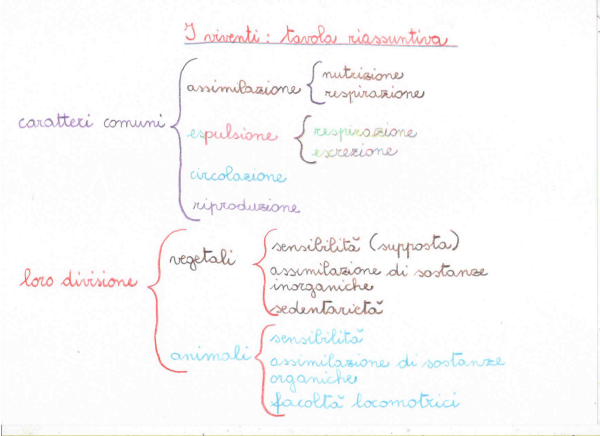 I viventi: tavola riassuntiva
caratteri comuni
assimilazione
nutrizione
respirazione
espulsione
respirazione
exrezione
circolazione
riproduzione
loro divisione
vegetali
sensibilità (supposta)
assimilazione di sostanze
inorganiche
sedentarietà
animali
sensibilità
assimilazione di sostanze
organiche
facoltà locomotrici